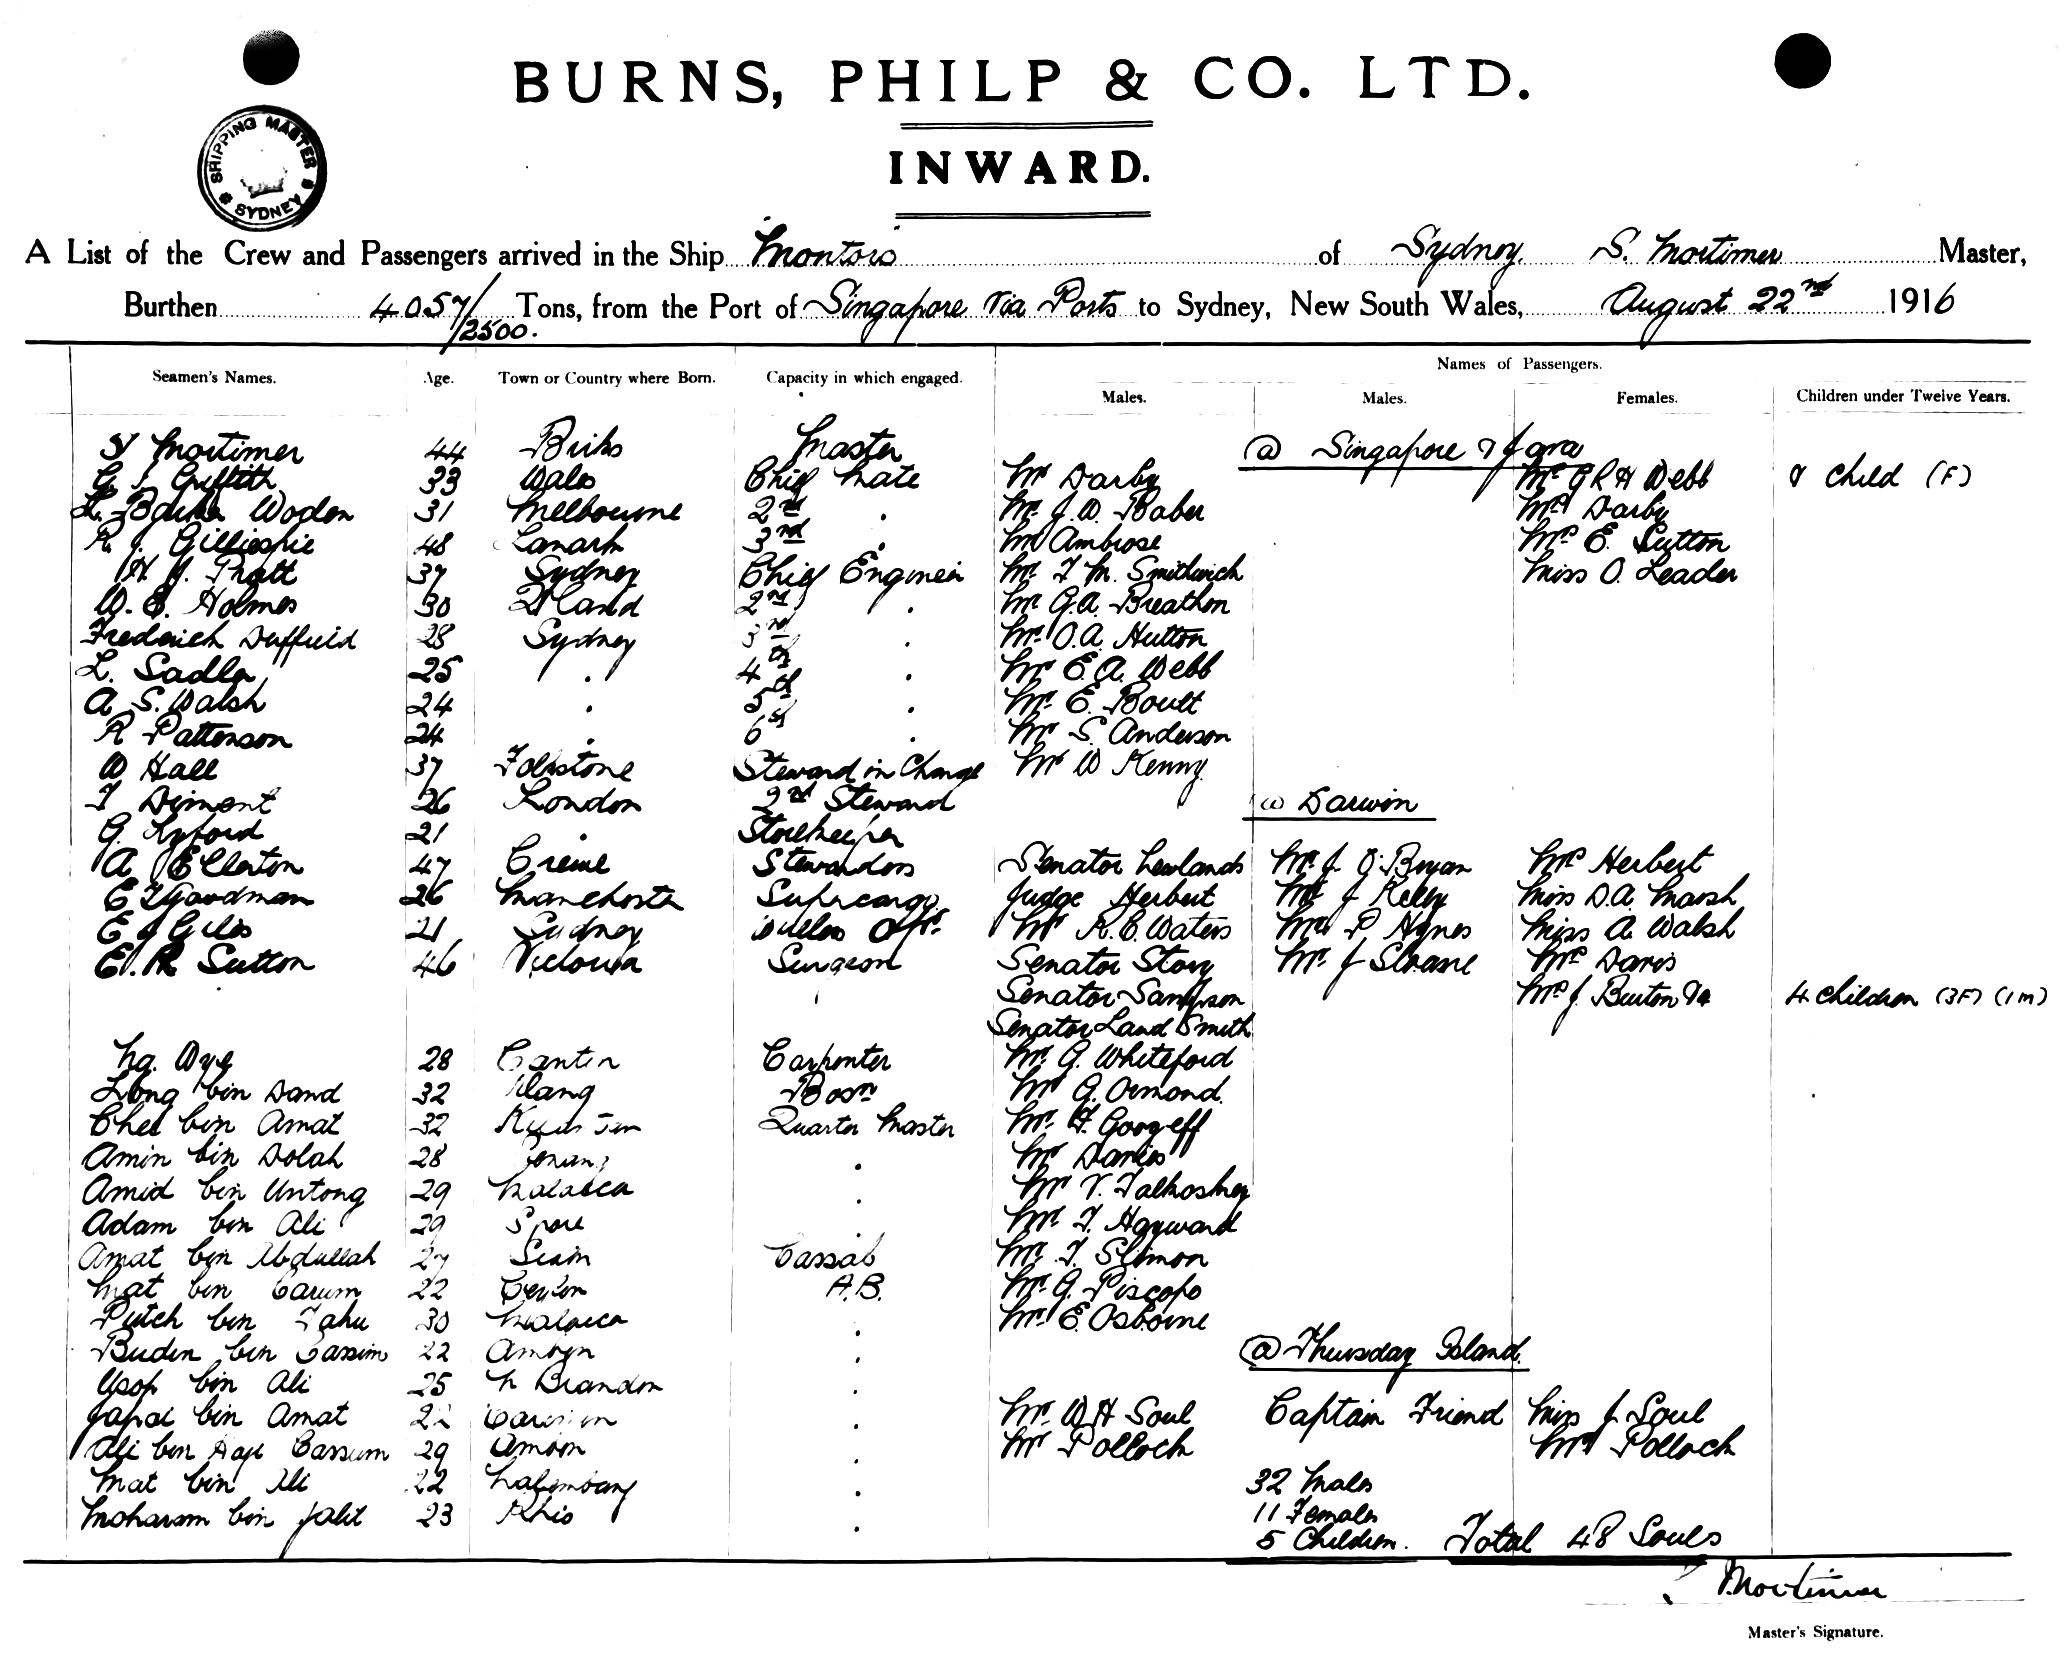 BURNS, PHILP & CO. LTD.
INWARD.
SHIPPING MASTER SYDNEY
A List of the Crew and Passengers arrived in the Ship Montoro of Sydney S. Mortimer Master,
Burthen 4057/2500. Tons, from the Port of Singapore via Ports to Sydney, New South Wales, August 22nd 1916
Names of Passengers.
Seamen's Names. Age. Town or Country where Born. Capacity in which engaged. Males. Males. Females. Children under Twelve Years.
S Mortimer 44 Master @ Singapore & Java
G. J. Griffith 33 Wales Chief Mate Mr Darby Mrs G R H Webb & Child (F)
L. Woolen 31 Melbourne 2nd . Mr. J. W. Baber Mrs Darby
R. J. Gillespie 48 Lanark 3rd . Mr Ambrose Mrs E. Sutton
H J. Pratt 37 Sydney Chief Engineer Mr. F M. Smithwich Miss O. Leader
W. E. Holmes 30 2nd . Mr G.A. Breathon
Frederick Duffield 28 Sydney 3rd . Mr. O.A. Hutton
L. Sadler 25 . 4th . Mr E. A. Webb
A S. Walsh 24 . 5th . Mr. E. Boult
R Pattenson 24 . 6th . Mr S. Anderson
W Hall 37 Folkstone Steward in Charge Mr W Kenny
J Diment 26 London 2nd Steward @ Darwin
G. 21 . Storekeeper
A Ellerton 47 Crewe Stewardess Senator Newlands Mr. J. O'Bryan Mrs Herbert
E J Goodman 26 Manchester Supercargo Judge Herbert Mr J Kelly Miss D.A. Marsh
E J Giles 21 Sydney Wireless Opr. Mr R. C. Waters Mr P Hynes Miss A. Walsh
E. R. Sutton 46 Victoria Surgeon Senator Story Mr. J Sloane Mrs Davis
Senator Sampson Mrs J. Burton & 4 4 Children (3F) (1M)
Senator Land Smith
Ng. Aye 28 Canton Carpenter Mr. G. Whiteford
Long bin Daud 32 Klang Bosn Mr G. Ormond.
Chee bin Amat 32 Quarter Master Mr. F. Googeff
Amin bin Dolah 28 Penang . Mr Davies
Amid bin Untong 29 Malacca . Mr V. Talkoskey
Adam bin Ali 29 Spore . Mr. T. Hayward
Amat bin Abdullah 27 Siam Cassab Mr. T. Slimon
Mat bin Carum 22 Ceylon A.B. Mr. G. Piscopo
Putch bin Tahu 30 Malacca . Mr. E. Osborne
Budin bin Cassim 22 Amboin . @ Thursday Island.
Usop bin Ali 25 N Brandon .
Japa bin Amat 22 . Mr. W H Soul Captain Friend Miss J. Soul
Ali bin Haji Cassum 29 Amboin . Mr Pollock Mrs Pollock
Mat bin Ali 22 Palembang . 32 Males
11 Females
Moharam bin Jalil 23 Rhio . 5 Children. Total 48 Souls
S Mortimer
Master's Signature.